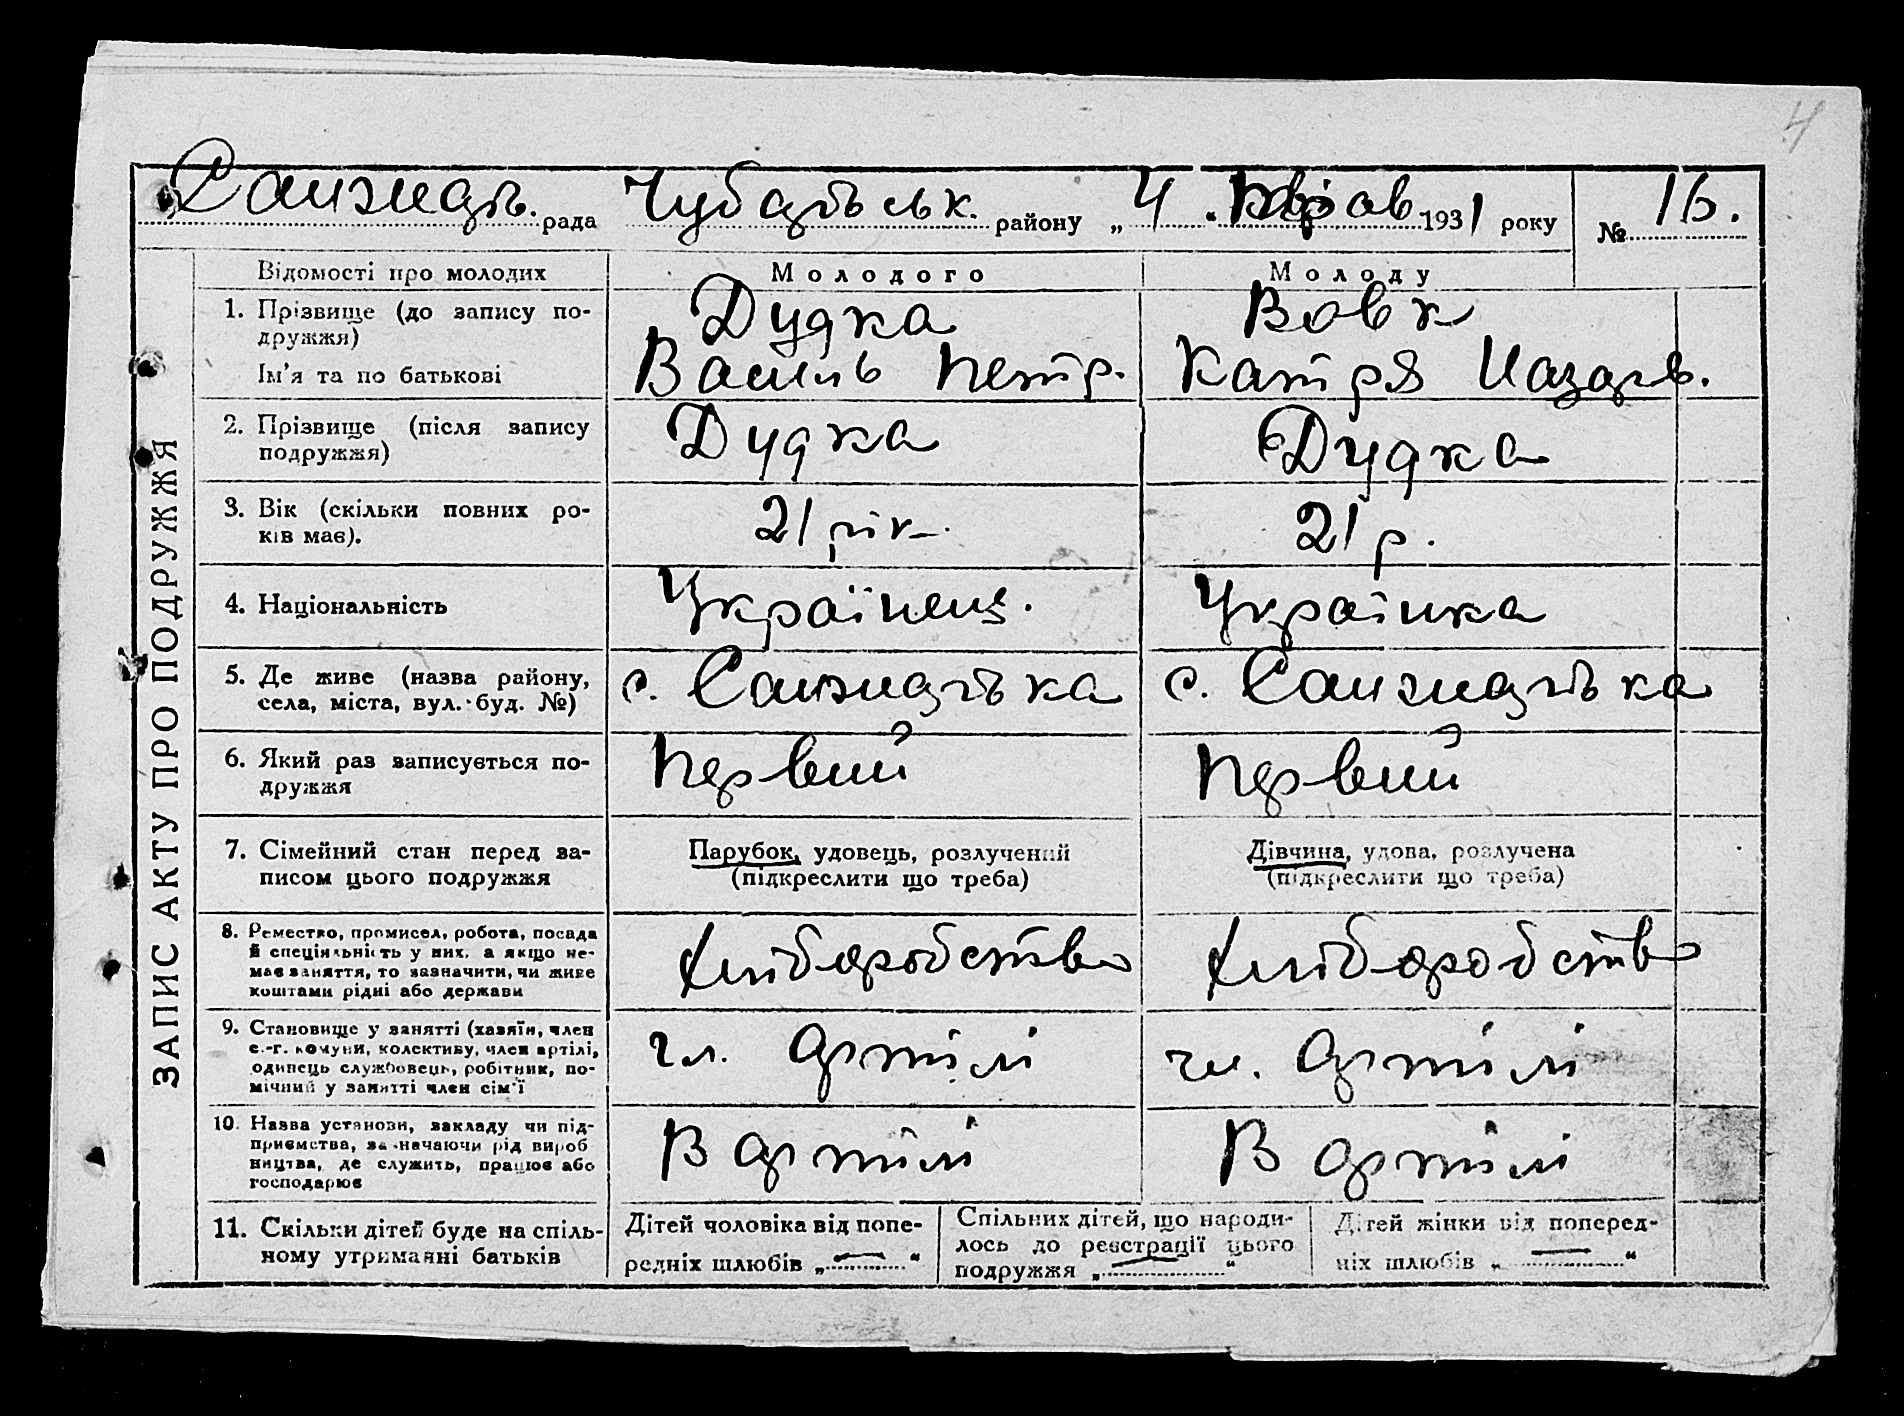 4
Санжар. рада Чубарськ. району „ 4 “ 1931 року № 16.
ЗАПИС АКТУ ПРО ПОДРУЖЖЯ
Відомості про молодих Молодого Молоду
1. Прізвище (до запису по- Дудка Вовк
дружжя)
Ім'я та по батькові Василь Петр. Катря Назарів.
2. Прізвище (після запису Дудка Дудка
подружжя)
3. Вік (скільки повних ро- 21 рік. 21 р.
ків має).
4. Національність Українець. Українка
5. Де живе (назва району, с. Санжарівка с. Санжарівка
села, міста, вул. буд. №)
6. Який раз записується по- Первий Первий
дружжя
7. Сімейний стан перед за- Парубок, удовець, розлучений Дівчина, удова, розлучена
писом цього подружжя (підкреслити що треба) (підкреслити що треба)
8. Ремество, промисел, робота, посада
й спеціяльність у них, а якщо не- Хліборобство Хліборобство
має заняття, то зазначити, чи живе
коштами рідні або держави
9. Становище у занятті (хазяїн, член
с.-г. комуни, колективу, член артілі, чл. артілі чл. артілі
одинець службовець, робітник, по-
мічний у занятті член сім'ї
10. Назва установи, закладу чи під-
приємства, зазначаючи рід вироб В артілі В артілі
ництва, де служить, працює або
господарює
11. Скільки дітей буде на спіль- Дітей чоловіка від попе- Спільних дітей, що народи- Дітей жінки від поперед-
ному утриманні батьків редніх шлюбів „ — “ лось до реєстрації цього ніх шлюбів „ — “
подружжя „ — “